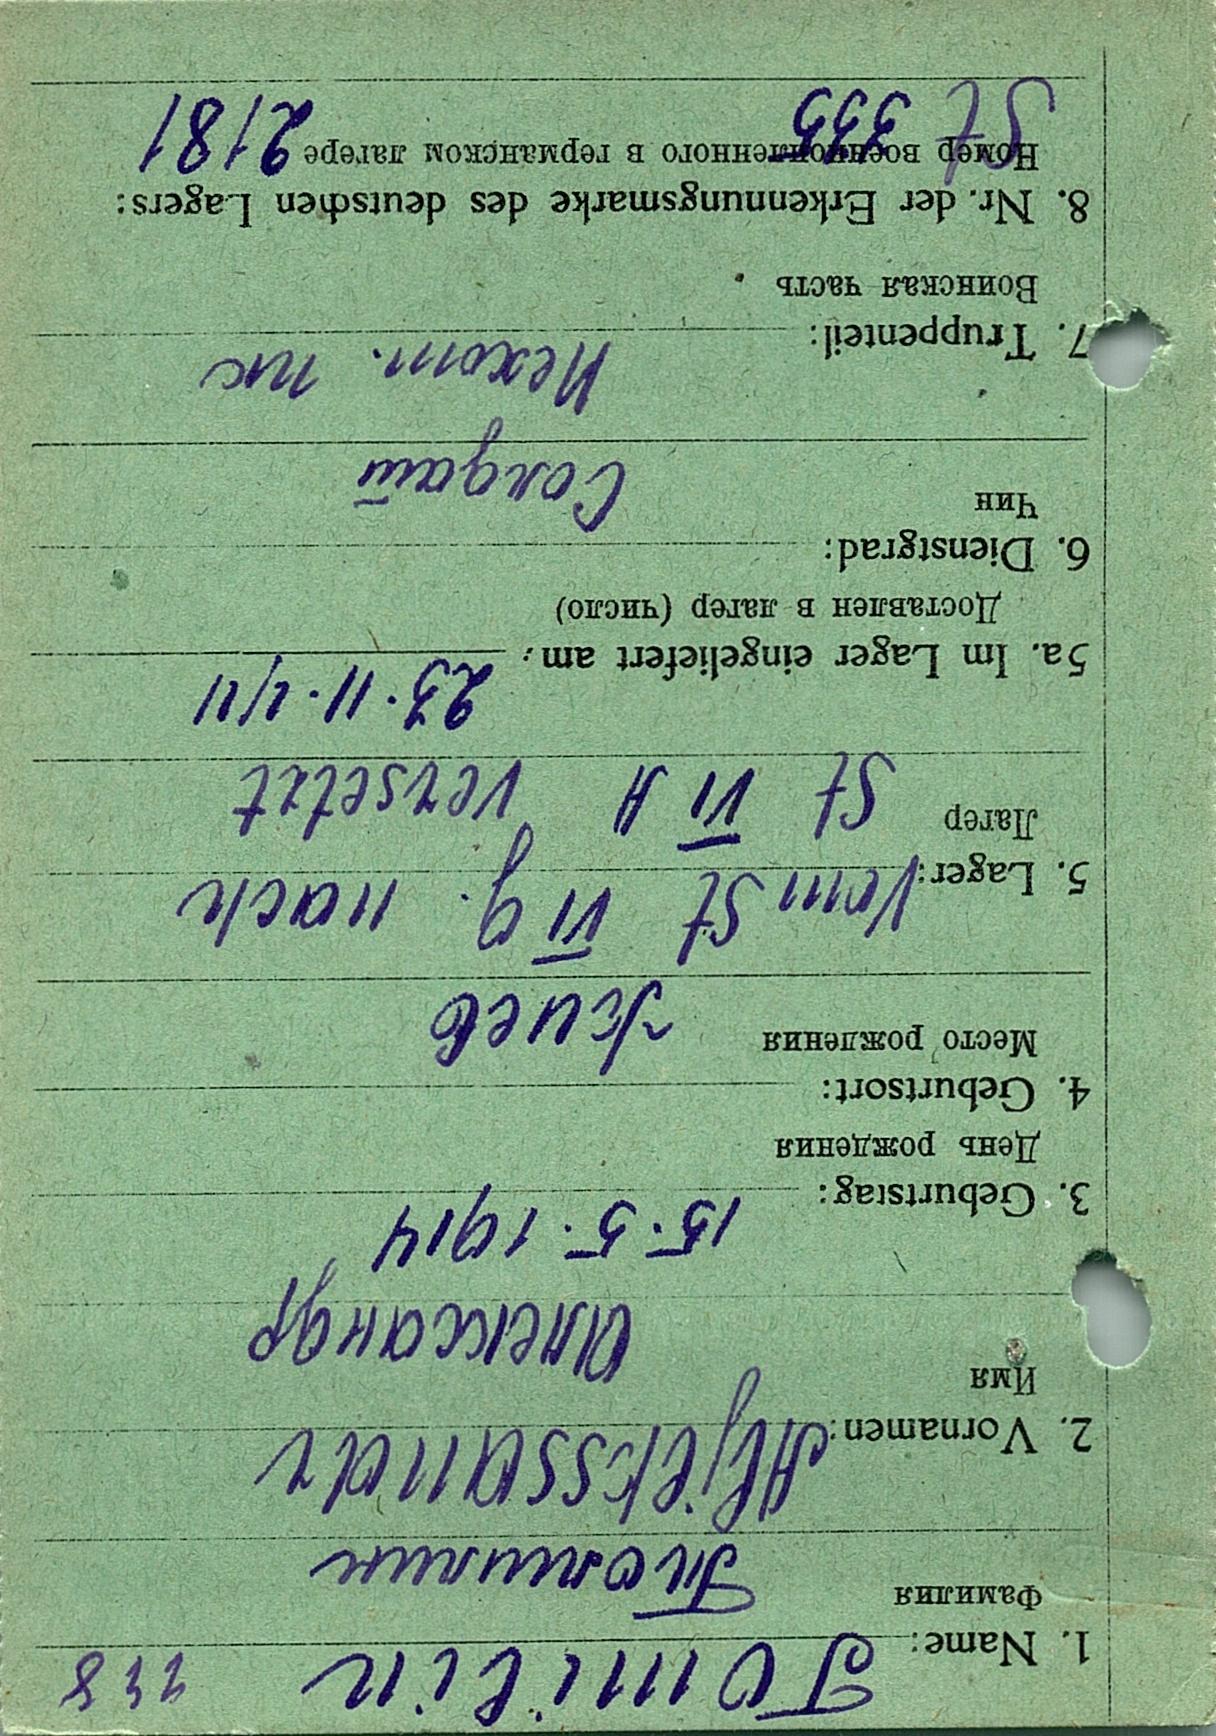 1. Name: Tomilin 228
Фамилия Томилин
2. Vornamen: Aljekssandr
Имя Александр
3. Geburtstag: 15.5.1914
День рождения
4. Geburtsort:
Место рождения
5. Lager: Vom St VI G. nach
Лагер St VI A versetzt
5a. Im Lager eingeliefert am: 23.11.1941
Доставлен в лагер (число)
6. Dienstgrad:
Чин Солдат
7. Truppenteil: Пехот.
Воинская часть
8. Nr. der Erkennungsmarke des deutschen Lagers:
Номер военнопленного в германском лагере 2181
St 335